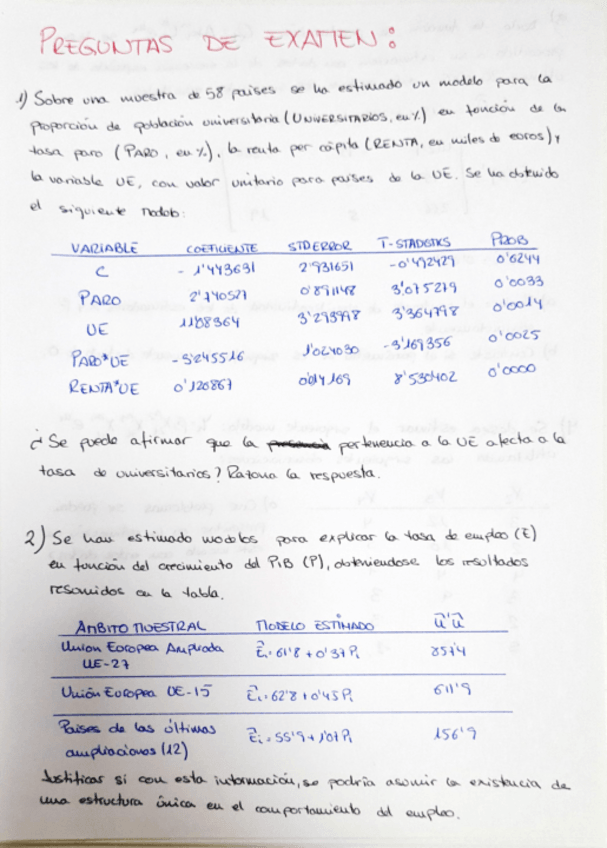 PREGUNTAS DE EXAMEN:
1) Sobre una muestra de 58 países se ha estimado un modelo para la
proporción de población universitaria (UNIVERSITARIOS, en %) en función de la
tasa paro (PARO, en %), la renta per cápita (RENTA, en miles de euros) y
la variable UE, con valor unitario para países de la UE. Se ha obtenido
el siguiente modelo:
VARIABLE COEFICIENTE STD ERROR T-STADISTICS PROB
C -1'443631 2'931651 -0'492429 0'6244
PARO 2'740527 0'891148 3'075279 0'0033
UE 11'08364 3'293998 3'364798 0'0014
PARO*UE -3'245516 1'024030 -3'169356 0'0025
RENTA*UE 0'120867 0'014169 8'530402 0'0000
¿Se puede afirmar que la pertenencia a la UE afecta a la
tasa de universitarios? Razona la respuesta.
2) Se han estimado modelos para explicar la tasa de empleo (E)
en función del crecimiento del PIB (P), obteniendose los resultados
resumidos en la tabla.
ÁMBITO MUESTRAL MODELO ESTIMADO û'û
Union Europea Ampliada Êi = 61'8 + 0'37 Pi 857'4
UE-27
Unión Europea UE-15 Êi = 62'8 + 0'45 Pi 611'9
Países de las últimas Êi = 55'9 + 1'07 Pi 156'9
ampliaciones (12)
Justificar si con esta información, se podría asumir la existencia de
una estructura única en el comportamiento del empleo.